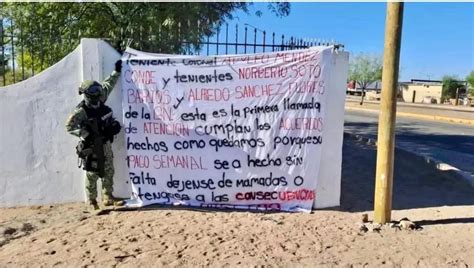 Teniente Coronel Arturo Mendez
Conde y tenientes Norberto Soto
Barrios y Alredo Sanchez Flores
de la GN esta es la primera llamada
de Atención cumplan los Acuerdos
hechos como quedamos porque su
pago semanal se a hecho sin
falta dejense de mamadas o
tengase a las consecuencias